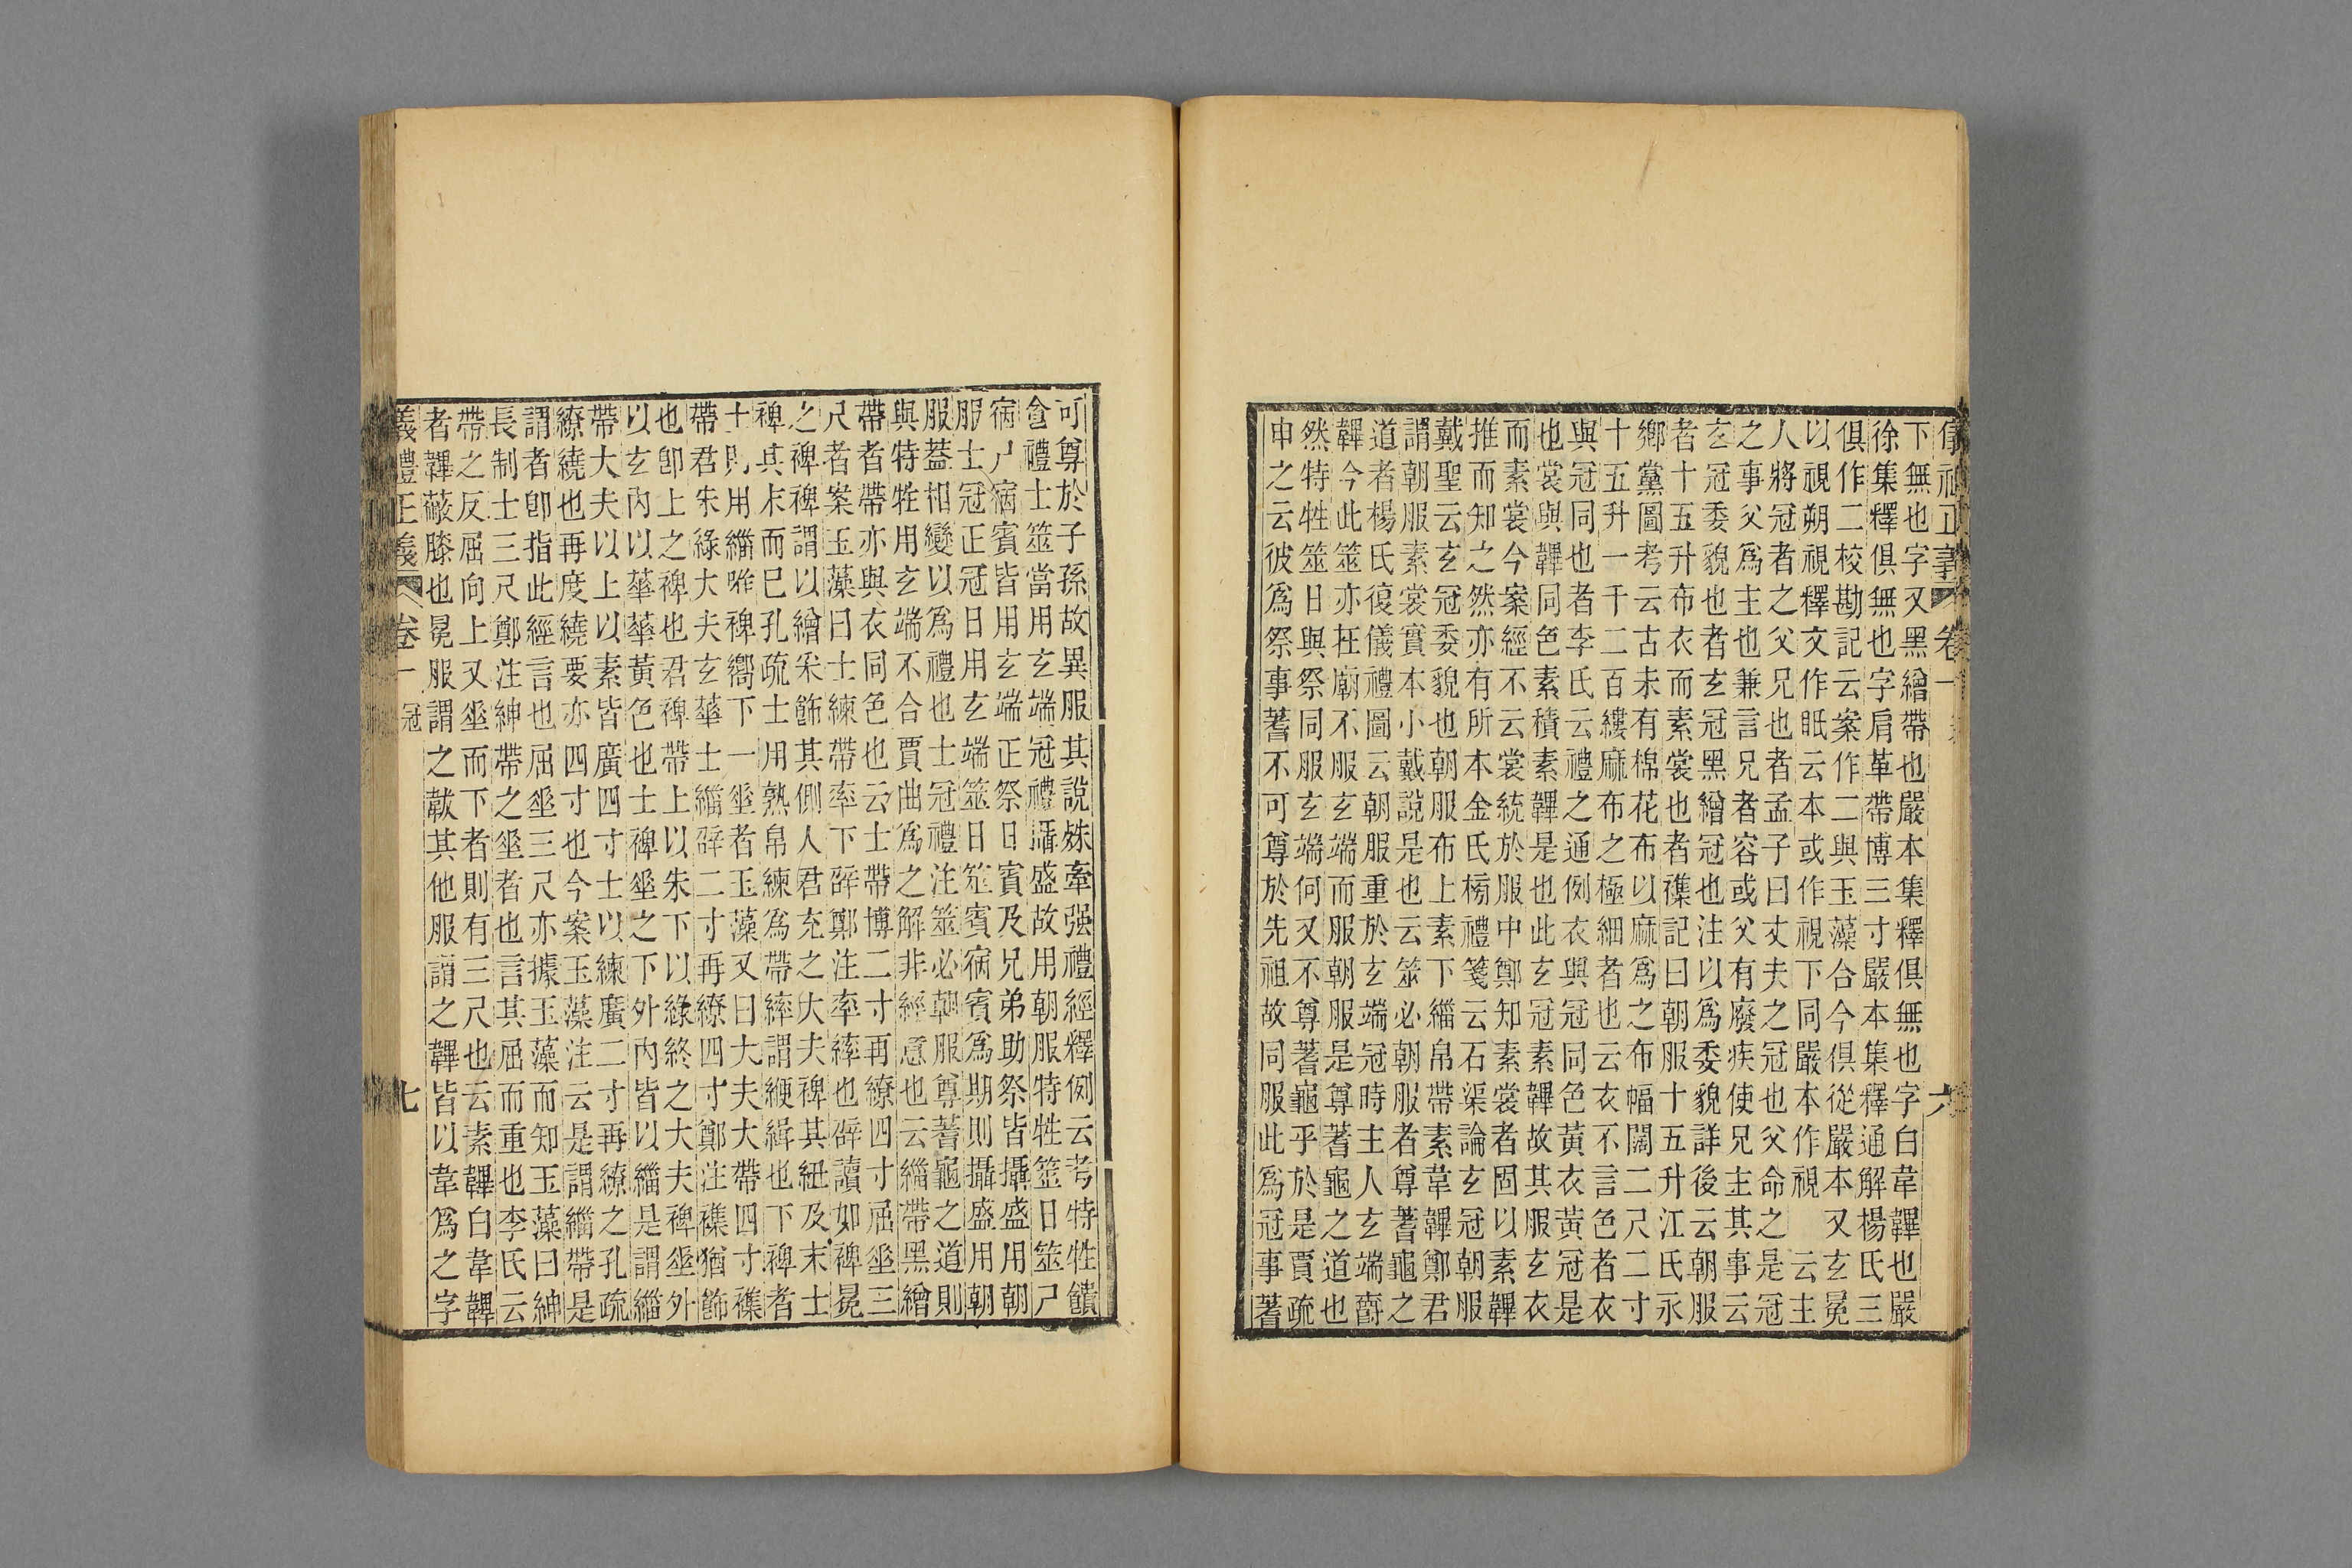 下無也字又黑繒帶也嚴本集釋俱無也字白韋韠也嚴
徐集釋俱無也字肩革帶博三寸嚴本集釋通解楊氏三
俱作二校勘記云案作二與玉藻合今俱從嚴本又玄冕
以視朔視釋文作眂云本或作視下同嚴本作視 云主
人將冠者之父兄也者孟子曰丈夫之冠也父命之是冠
之事父爲主也兼言兄者容或父有廢疾使兄主其事云
玄冠委貌也者玄冠黑繒冠也注以爲委貌詳後云朝服
者十五升布衣而素裳也者襍記曰朝服十五升江氏永
鄉黨圖考云古未有棉花布以麻爲之布幅闊二尺二寸
十五升一千二百縷麻布之極細者也云衣不言色者衣
與冠同也者李氏云禮之通例衣與冠同色黃衣黃冠是
也裳與韠同色素積素韠是也此玄冠素韠故其服玄衣
而素裳今案經不云裳統於服中鄭知素裳者固以素韠
推而知之然亦有所本金氏榜禮箋云石渠論玄冠朝服
戴聖云玄冠委貌也朝服布上素下緇帛帶素韋韠鄭君
謂朝服素裳實本小戴說是也云筮必朝服者尊蓍龜之
道者楊氏復儀禮圖云朝服重於玄端冠時主人玄端爵
韠今此筮亦在廟不服玄端而服朝服是尊蓍龜之道也
然特牲筮日與祭同服玄端何又不尊蓍龜乎於是賈疏
申之云彼爲祭事蓍不可尊於先祖故同服此爲冠事蓍
可尊於子孫故異服其說殊牽强禮經釋例云考特牲饋
食禮士筮當用玄端冠禮攝盛故用朝服特牲筮日筮尸
宿尸宿賓皆用玄端正祭日賓及兄弟助祭皆攝盛用朝
服士冠正冠日用玄端筮日筮賓宿賓爲期則攝盛用朝
服蓋相變以爲禮也士冠禮注筮必朝服尊蓍龜之道則
與特牲用玄端不合賈曲爲之解非經意也云緇帶黑繒
帶者帶亦與衣同色也云士帶博二寸再繚四寸屈垂三
尺者案玉藻曰士練帶率下辟鄭注率繂也辟讀如裨冕
之裨裨謂以繒采飾其側人君充之大夫裨其紐及末士
裨其末而已孔疏士用熟帛練爲帶繂謂緶緝也下裨者
士則用緇唯裨嚮下一垂者玉藻又曰大夫大帶四寸襍
帶君朱綠大夫玄華士緇辟二寸再繚四寸鄭注襍猶飾
也卽上之裨也君裨帶上以朱下以綠終之大夫裨垂外
以玄內以華華黃色也士裨垂之下外內皆以緇是謂緇
帶大夫以上以素皆廣四寸士以練廣二寸再繚之孔疏
繚繞也再度繞要亦四寸也今案玉藻注云是謂緇帶是
謂者卽指此經言也屈垂三尺亦據玉藻而知玉藻曰紳
長制士三尺鄭注紳帶之垂者也言其屈而重也李氏云
帶之反屈向上又垂而下者則有三尺也云素韠白韋韠
者韠蔽膝也冕服謂之韍其他服謂之韠皆以韋爲之字
義禮正義 卷一 冠 七